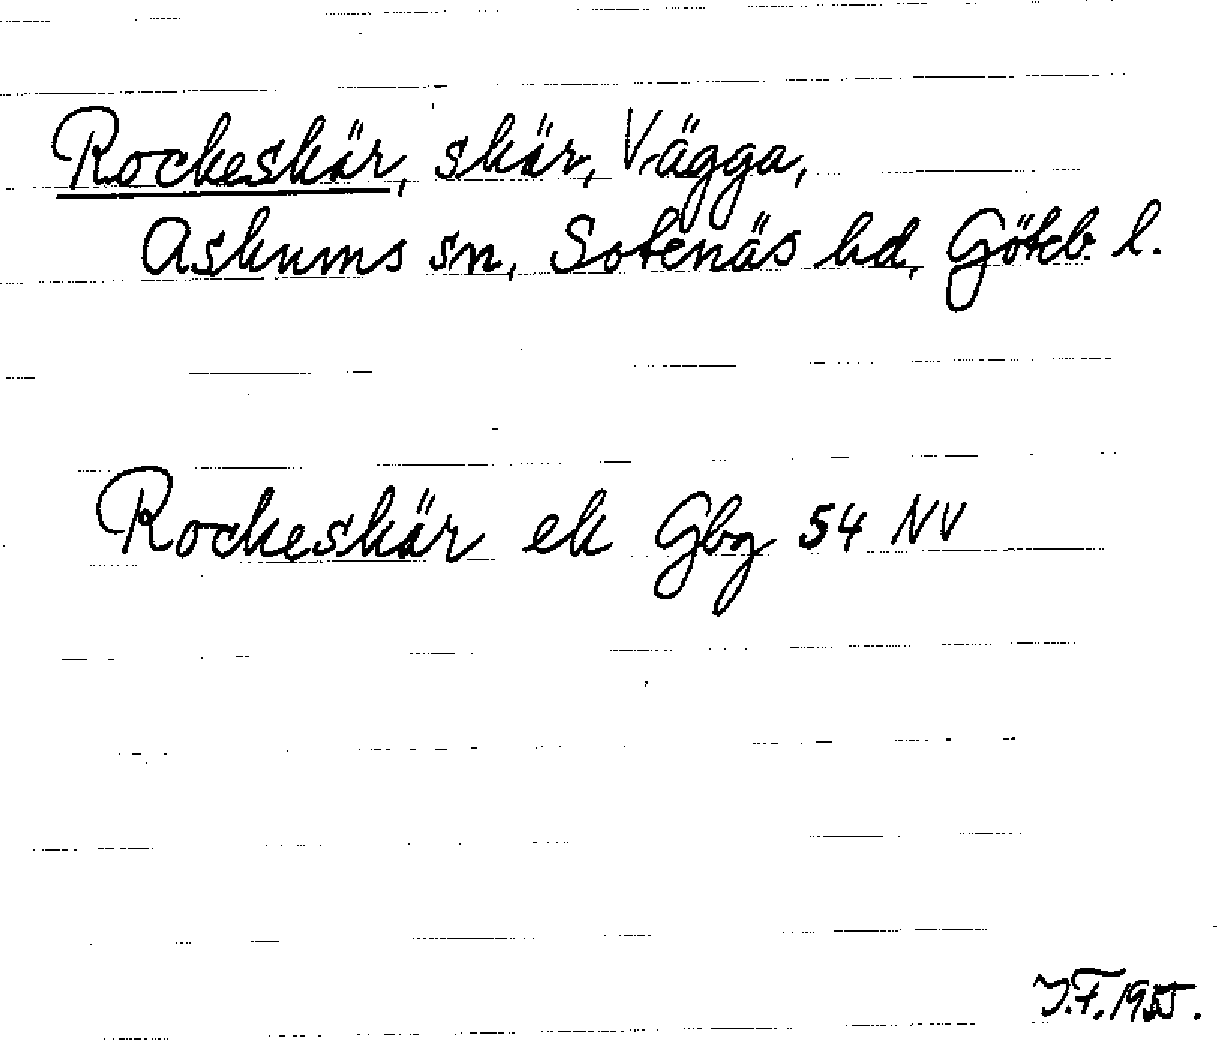 Rockeskär, skär, Vägga,
Askums sn, Sotenäs hd, Göteb. l.
Rockeskär ek Gbg 54 NV
J.F. 1955.